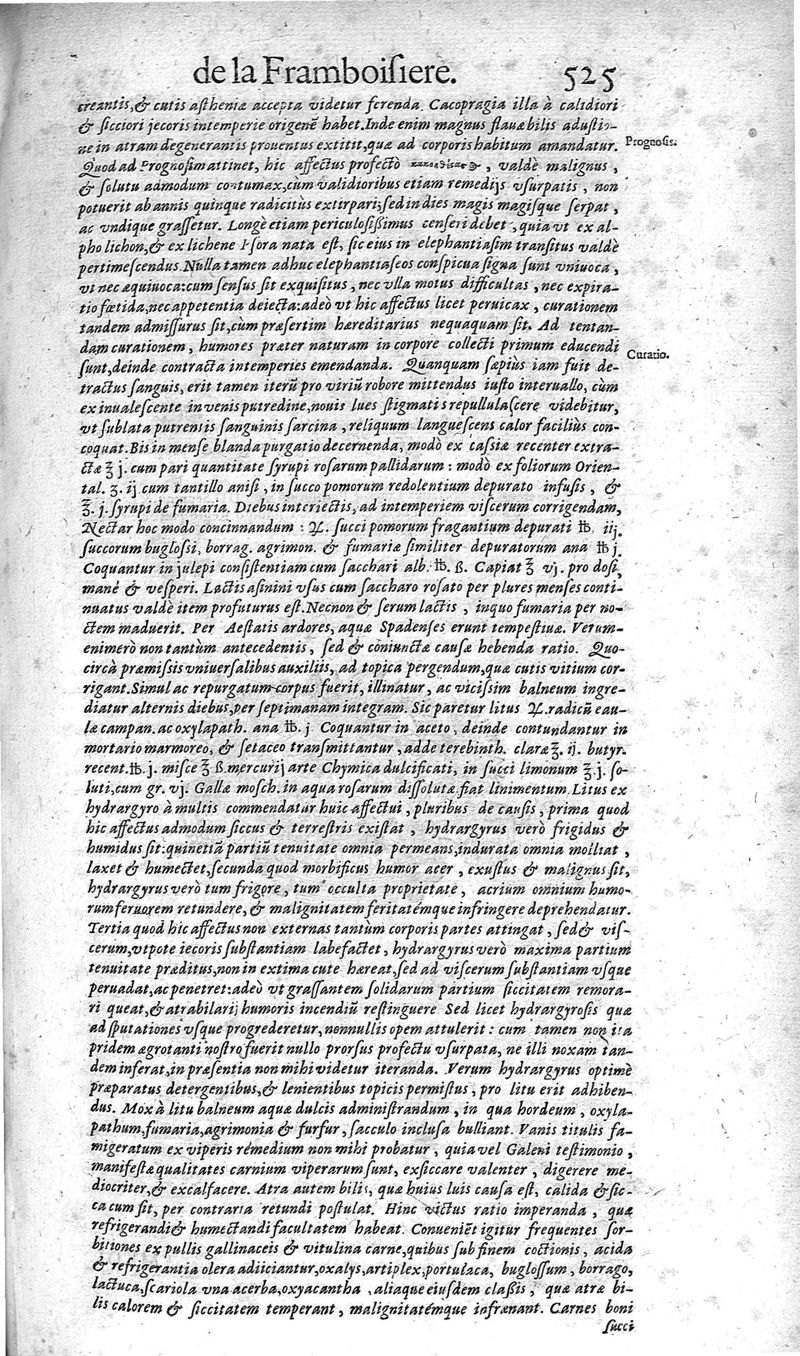 de la Framboiſiere. 525
creantis, & cutis aſtheniæ accepta videtur ferenda. Cacopragia illa à calidiori
& ſicciori jecoris intemperie originē habet. Inde enim magnus flauæ bilis aduſtio-
ne in atram degenerantis prouentus extitit, quæ ad corporis habitum amandatur.
Prognoſis.
Quod ad Prognoſim attinet, hic affectus profectò , valdè malignus,
& ſolutu admodum contumax, cùm validioribus etiam remedijs vſurpatis, non
potuerit ab annis quinque radicitùs extirpari, ſed in dies magis magiſque ſerpat,
ac vndique graſſetur. Longè etiam periculoſißimus cenſeri debet, quia vt ex al-
pho lichon, & ex lichene Pſora nata eſt, ſic eius in elephantiaſim tranſitus valdè
pertimeſcendus. Nulla tamen adhuc elephantiaſeos conſpicua ſigna ſunt vniuoca,
vt nec æquiuoca: cum ſenſus ſit exquiſitus, nec vlla motus difficultas, nec expira-
tio fœtida, nec appetentia deiecta: adeò vt hic affectus licet peruicax, curationem
tandem admiſſurus ſit, cùm præſertim hæreditarius nequaquam ſit. Ad tentan-
dam curationem, humores præter naturam in corpore collecti primum educendi
Curatio.
ſunt, deinde contracta intemperies emendanda. Quanquam ſæpiùs iam fuit de-
tractus ſanguis, erit tamen iterū pro viriū robore mittendus iuſto interuallo, cùm
ex inualeſcente in venis putredine, nouis lues ſtigmatis repullulaſcere videbitur,
vt ſublata putrentis ſanguinis ſarcina, reliquum langueſcens calor faciliùs con-
coquat. Bis in menſe blanda purgatio decernenda, modò ex caſſiæ recenter extra-
ctæ ℥ j. cum pari quantitate ſyrupi roſarum pallidarum: modò ex foliorum Orien-
tal. ʒ. ij cum tantillo aniſi, in ſucco pomorum redolentium depurato infuſis, &
℥. j. ſyrupi de fumaria. Diebus interiectis, ad intemperiem viſcerum corrigendam,
Nectar hoc modo concinnandum: ℞. ſucci pomorum fragantium depurati ℔ iij.
ſuccorum bugloſſi, borrag. agrimon. & fumariæ ſimiliter depuratorum ana ℔ j.
Coquantur in julepi conſiſtentiam cum ſacchari alb. ℔. ß. Capiat ℥ vj. pro doſi,
manè & veſperi. Lactis aſinini vſus cum ſaccharo roſato per plures menſes conti-
nuatus valdè item profuturus eſt. Necnon & ſerum lactis, in quo fumaria per no-
ctem maduerit. Per Aeſtatis ardores, aquæ Spadenſes erunt tempeſtiuæ. Verum-
enimerò non tantùm antecedentis, ſed & coniunctæ cauſæ hebenda ratio. Quo-
circà præmiſſis vniuerſalibus auxiliis, ad topica pergendum, quæ cutis vitium cor-
rigant. Simul ac repurgatum corpus fuerit, illinatur, ac viciſſim balneum ingre-
diatur alternis diebus, per ſeptimanam integram. Sic paretur litus ℞. radicū enu-
læ campan. ac oxylapath. ana ℔. j Coquantur in aceto, deinde contundantur in
mortario marmoreo, & ſetaceo tranſmittantur, adde terebinth. claræ ℥. ij. butyr.
recent. ℔. j. miſce ℥ ß. mercurij arte Chymica dulcificati, in ſucci limonum ℥. j. ſo-
luti, cum gr. vj. Gallæ moſch. in aqua roſarum diſſolutæ. fiat linimentum. Litus ex
hydrargyro à multis commendatur huic affectui, pluribus de cauſis, prima quod
hic affectus admodum ſiccus & terreſtris exiſtat, hydrargyrus verò frigidus &
humidus ſit: quinetiā partiū tenuitate omnia permeans, indurata omnia molliat,
laxet & humectet, ſecunda quod morbificus humor acer, exuſtus & malignus ſit,
hydrargyrus verò tum frigore, tum occulta proprietate, acrium omnium humo-
rum feruorem retundere, & malignitatem feritatémque infringere deprehendatur.
Tertia quod hic affectus non externas tantùm corporis partes attingat, ſed & viſ-
cerum, vtpote iecoris ſubſtantiam labefactet, hydrargyrus verò maxima partium
tenuitate præditus, non in extima cute hæreat, ſed ad viſcerum ſubſtantiam vſque
peruadat, ac penetret: adeò vt graſſantem ſolidarum partium ſiccitatem remora-
ri queat, & atrabilarij humoris incendiū reſtinguere Sed licet hydrargyroſis quæ
ad ſputationes vſque progrederetur, nonnullis opem attulerit: cum tamen non ita
pridem ægrotanti noſtro fuerit nullo prorſus profectu vſurpata, ne illi noxam tan-
dem inferat, in præſentia non mihi videtur iteranda. Verum hydrargyrus optimè
præparatus detergentibus, & lenientibus topicis permiſtus, pro litu erit adhiben-
dus. Mox à litu balneum aquæ dulcis adminiſtrandum, in qua hordeum, oxyla-
pathum, fumaria, agrimonia & furfur, ſacculo incluſa bulliant. Vanis titulis fa-
migeratum ex viperis rémedium non mihi probatur, quia vel Galeni teſtimonio,
manifeſtæ qualitates carnium viperarum ſunt, exſiccare valenter, digerere me-
diocriter, & excalfacere. Atra autem bilis, quæ huius luis cauſa eſt, calida & ſic-
ca cum ſit, per contraria retundi poſtulat. Hinc victus ratio imperanda, quæ
refrigerandi & humectandi facultatem habeat. Conueniēt igitur frequentes ſor-
bitiones ex pullis gallinaceis & vitulina carne, quibus ſub finem coctionis, acida
& refrigerantia olera adiiciantur, oxalys, artiplex, portulaca, bugloſſum, borrago,
lactuca, ſcariola vna acerba, oxyacantha, aliaque eiuſdem claßis, quæ atræ bi-
lis calorem & ſiccitatem temperant, malignitatémque infrænant. Carnes boni
ſucci